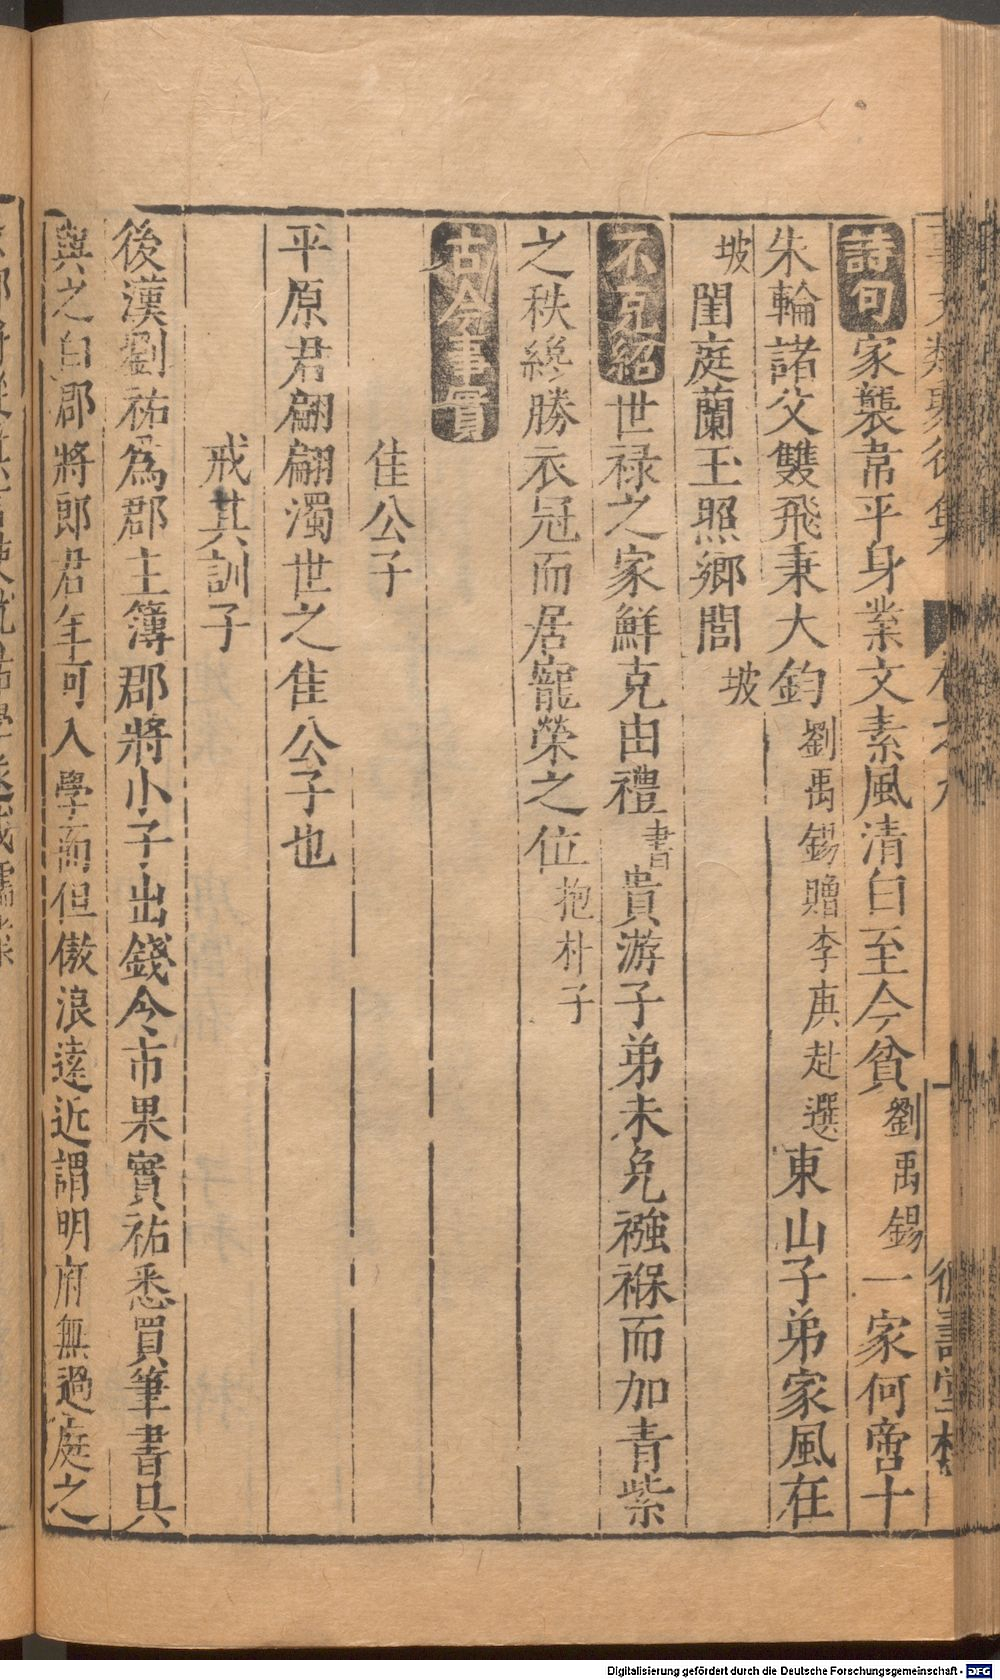 詩句家襲韋平身業文素風清白至今貧劉禹錫一家何啻十
朱輪諸父雙飛秉大鈞劉禹錫贈李庾赴選東山子弟家風在
坡閨庭蘭玉照鄉閭坡
不克紹世祿之家鮮克由禮書貴游子弟未免襁褓而加青紫
之秩纔勝衣冠而居寵榮之位抱朴子
古今事實
佳公子
平原君翩翩濁世之佳公子也
戒其訓子
後漢劉祐為郡主簿郡將小子出錢令市果實祐悉買筆書具
與之白郡將郎君年可入學而但傲浪遠近謂明府無過庭之
Digitalisierung gefördert durch die Deutsche Forschungsgemeinschaft - DFG